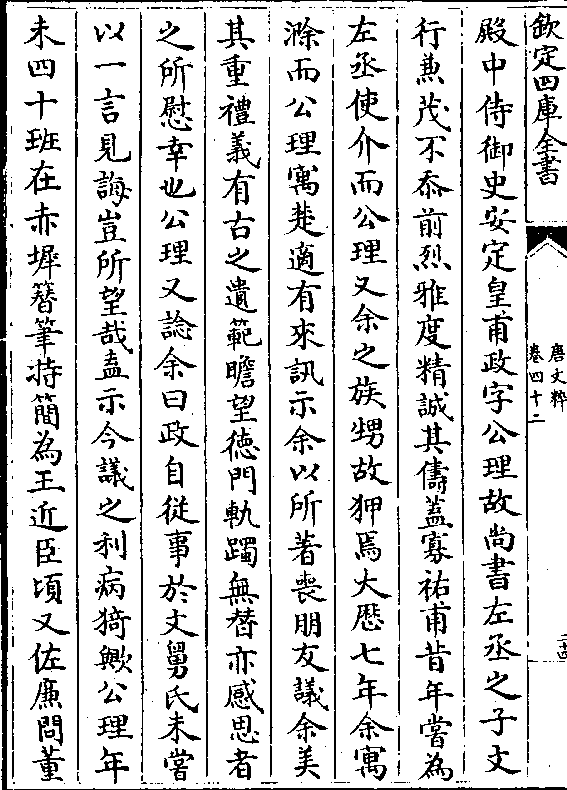 欽定四庫全書
唐文粹
卷四十二
二十四
殿中侍御史安定皇甫政字公理故尚書左丞之子文
行兼茂不忝前烈雅度精誠其儔蓋寡祐甫昔年嘗為
左丞使介而公理又余之族甥故狎焉大厯七年余寓
滁而公理寓楚適有來訊示余以所著喪朋友議余美
其重禮義有古之遺範瞻望徳門軌躅無替亦感思者
之所慰幸也公理又諗余曰政自従事於文舅氏未嘗
以一言見誨豈所望哉盍示今議之利病猗歟公理年
未四十班在赤墀簮筆持簡為王近臣頃又佐廉問董